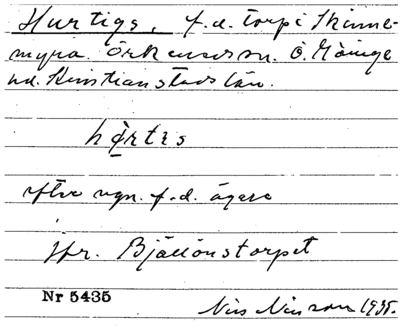 Hurtigs, f.d. torp i Skinne-
myra. Örkeneds sn. Ö. Göinge
hd. Kristianstads län.
hørtɪs
efter ngn. f.d. ägare
Jfr. Bjällönstorpet
Nr 5435
Nils Nilsson 1935.